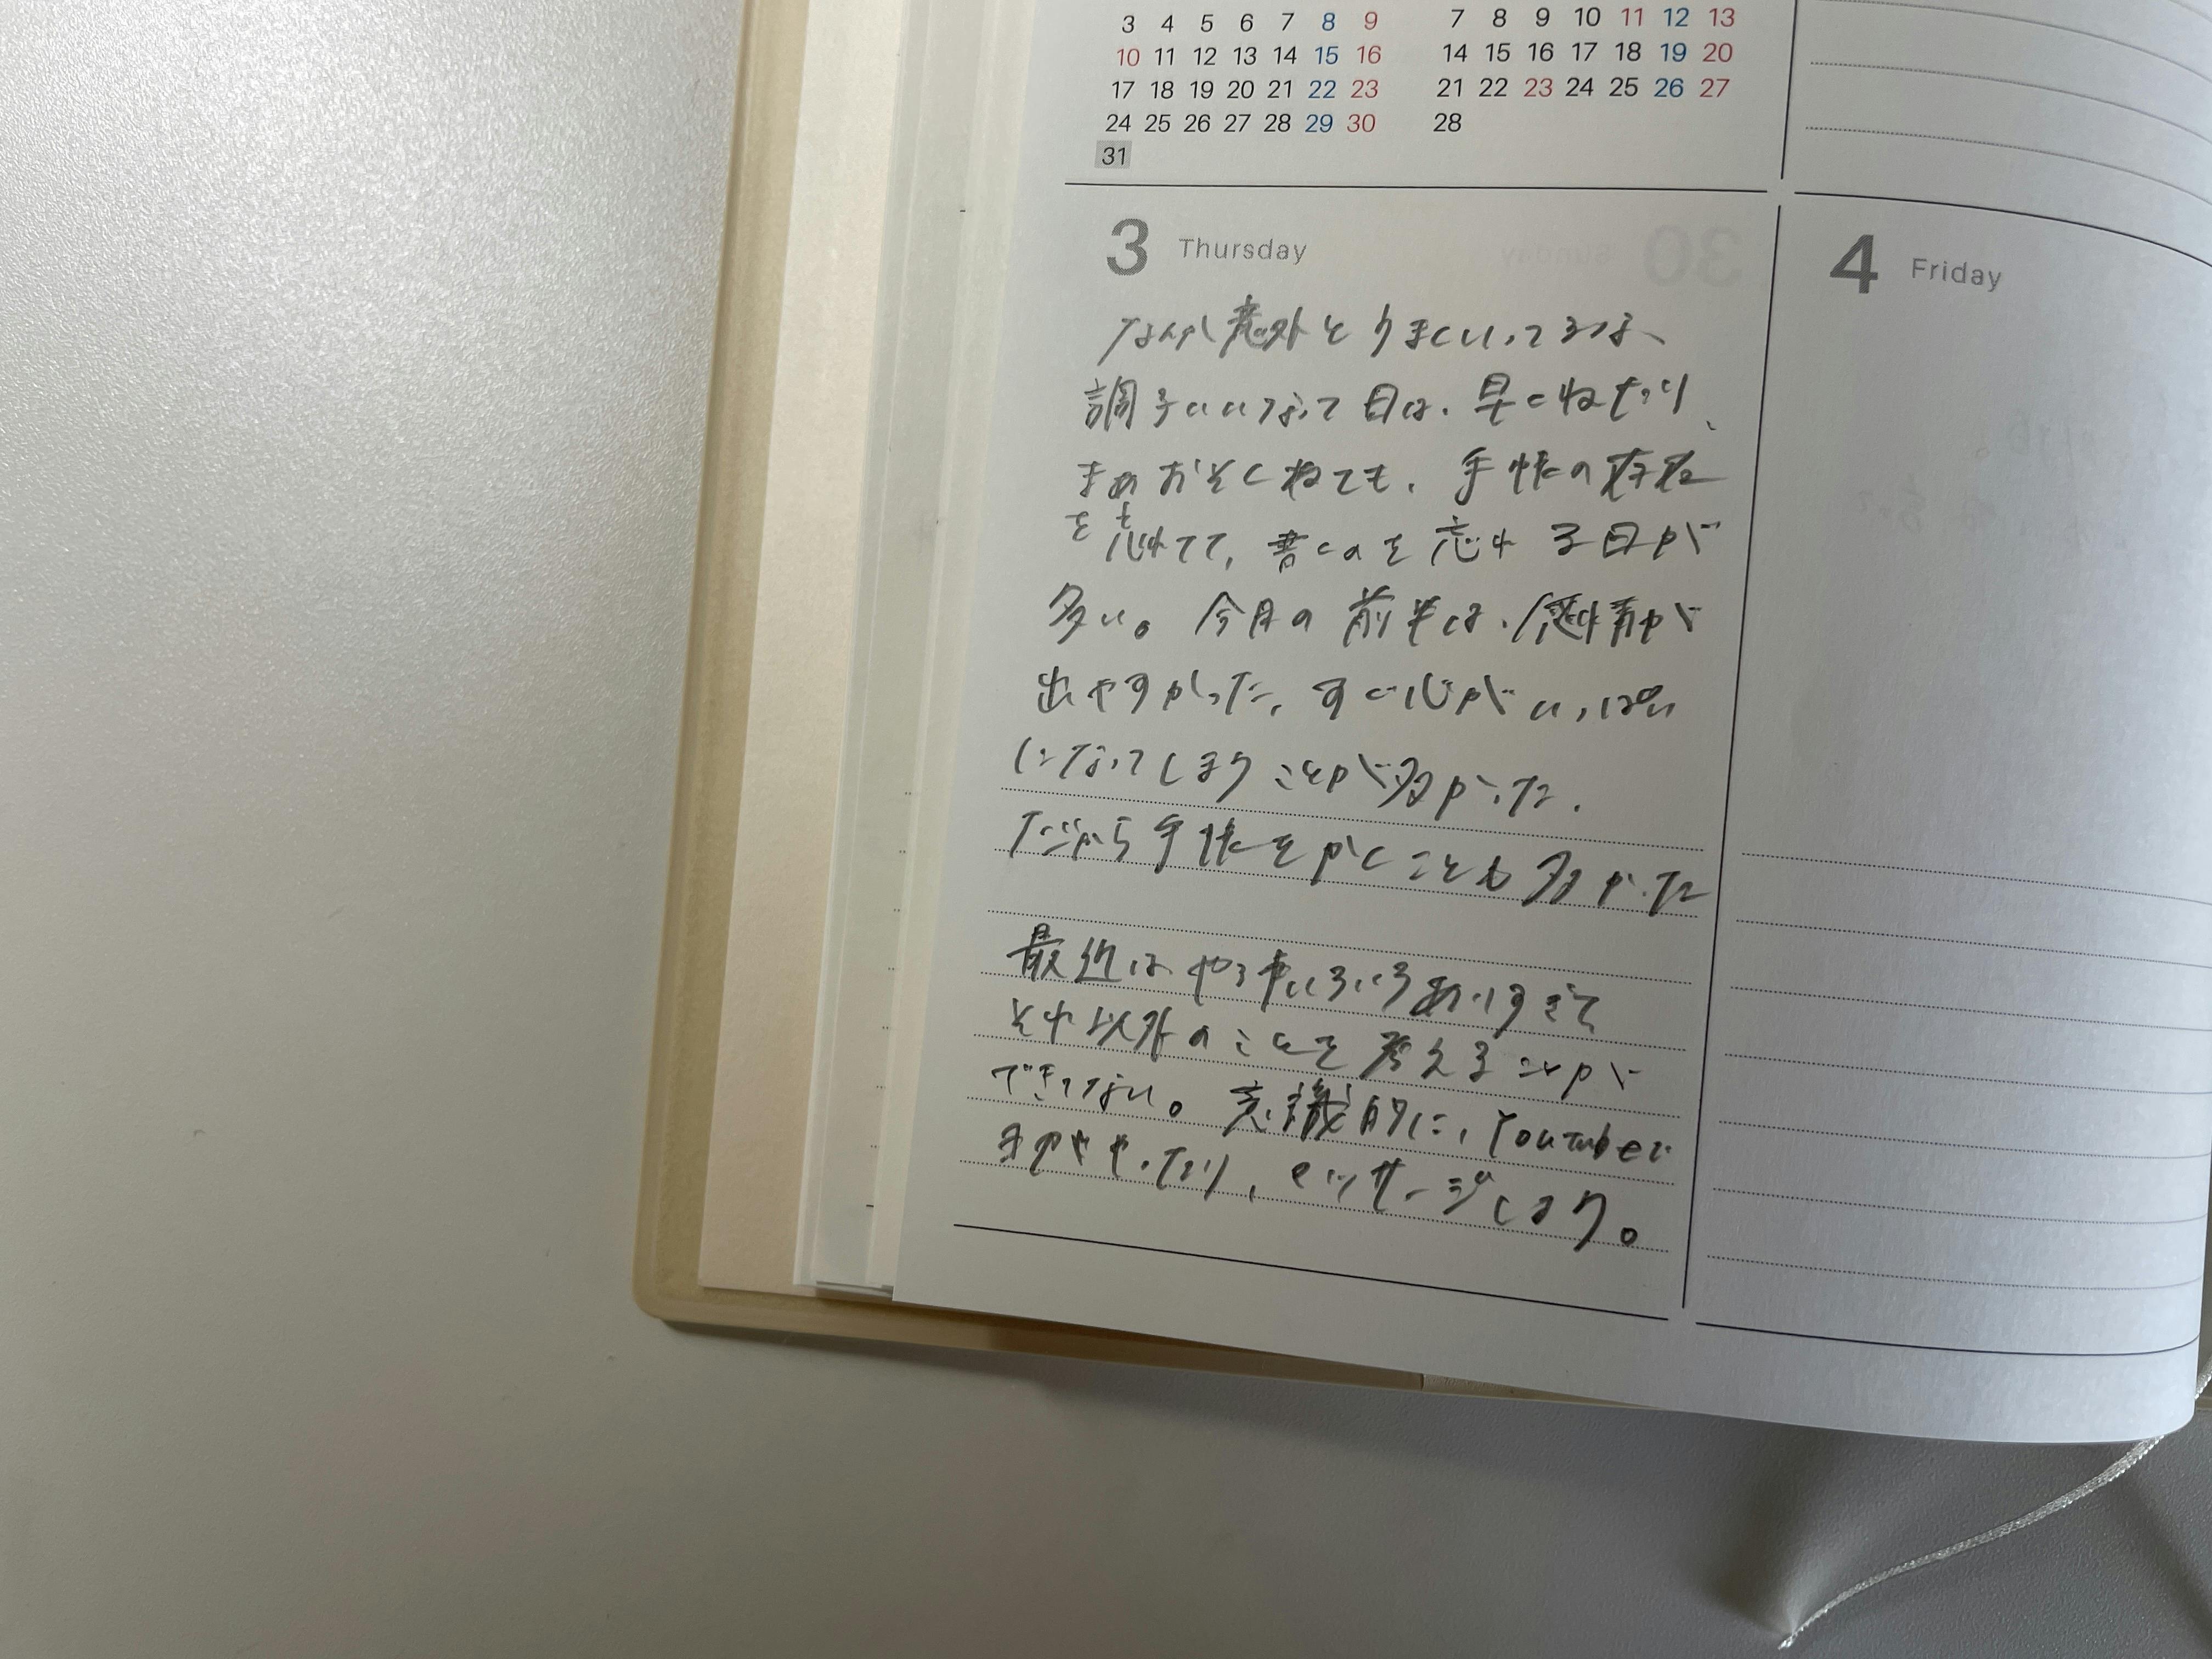 3 4 5 6 7 8 9
10 11 12 13 14 15 16
17 18 19 20 21 22 23
24 25 26 27 28 29 30
31
7 8 9 10 11 12 13
14 15 16 17 18 19 20
21 22 23 24 25 26 27
28
3 Thursday
なんか意外とうまくいってるな、
調子いいなって日は、早くねたり、
まあおそくねても、手帳の存在
を忘れてて、書くのを忘れる日が
多い。今月の前半は、感情が
出やすかった、すぐ心がいっぱい
になってしまうことが多かった。
だから手帳をかくことも多かった
最近はやる事いろいろありすぎて
それ以外のことを考えることが
できてない。意識的に、Youtubeで
やったり、マッサージしよう。
4 Friday